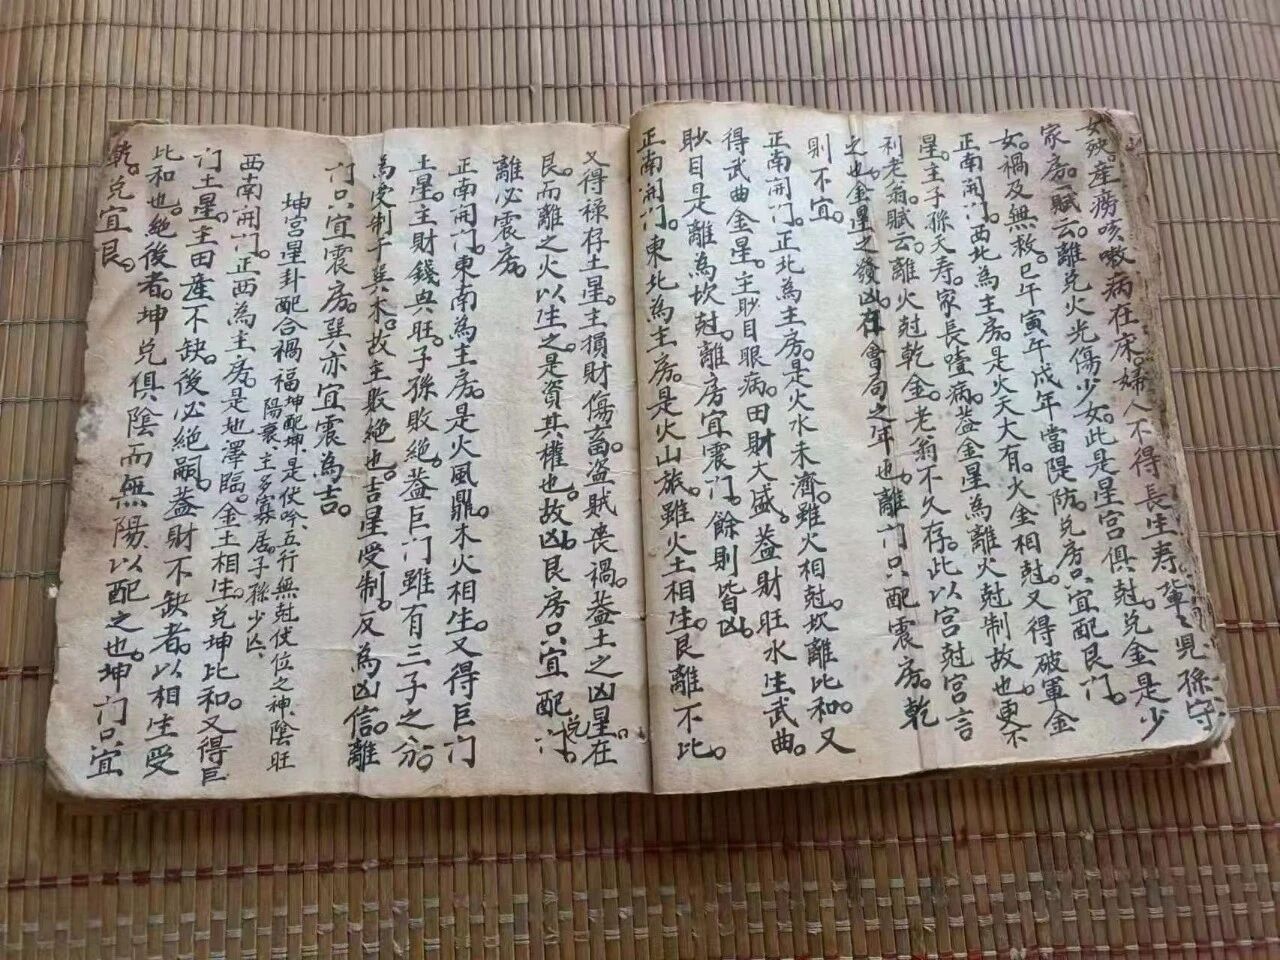 女殃。產癆咳嗽病在床。婦人不得長生寿。輩輩兒孫守
家房。賦云。離兑火光傷少女。此是星宮俱尅。兑金是少
女。禍及無救。巳午寅午戌年當隄防。兑房只宜配艮門。
正南開門。西北為主房。是火天大有。火金相尅。又得破軍金
星。主子孫夭寿。家長噎病。盖金星為離火尅制故也。更不
利老翁。賦云。離火尅乾金。老翁不久存。此以宮尅宮言
之也。金星之發凶。在會局之年也。離門只配震房。乾
則不宜。
正南開門。正北為主房。是火水未濟。雖火相尅。坎離比和。又
得武曲金星。主眇目眼病。田財大盛。盖財旺水生武曲。
眇目是離為坎尅。離房宜震門。餘則皆凶。
正南開門。東北為主房。是火山旅。雖火土相生。艮離不比。
又得禄存土星。主損財傷畜。盗賊喪禍。盖土之凶星。在
艮。而離之火以生之。是資其權也。故凶。艮房只宜配兑門。
離必震房。
正南開門。東南為主房。是火風鼎。木火相生。又得巨門
土星。主財錢興旺。子孫敗絕。盖巨门雖有三子之分。
為受制于巽木。故主敗絕也。吉星受制。反為凶信。離
门只宜震房。巽亦宜震為吉。
坤宮星卦配合禍福坤配坤、是伏吟、五行無尅伏位之神、陰旺
陽衰、主多寡居。子孫少凶、
西南開门。正西為主房。是地澤臨。金土相生。兑坤比和。又得巨
门土星。主田産不缺。後必絕嗣。盖財不缺者。以相生受
比和也。絕後者。坤兑俱陰而無陽、以配之也。坤门只宜
乾。兑宜艮。